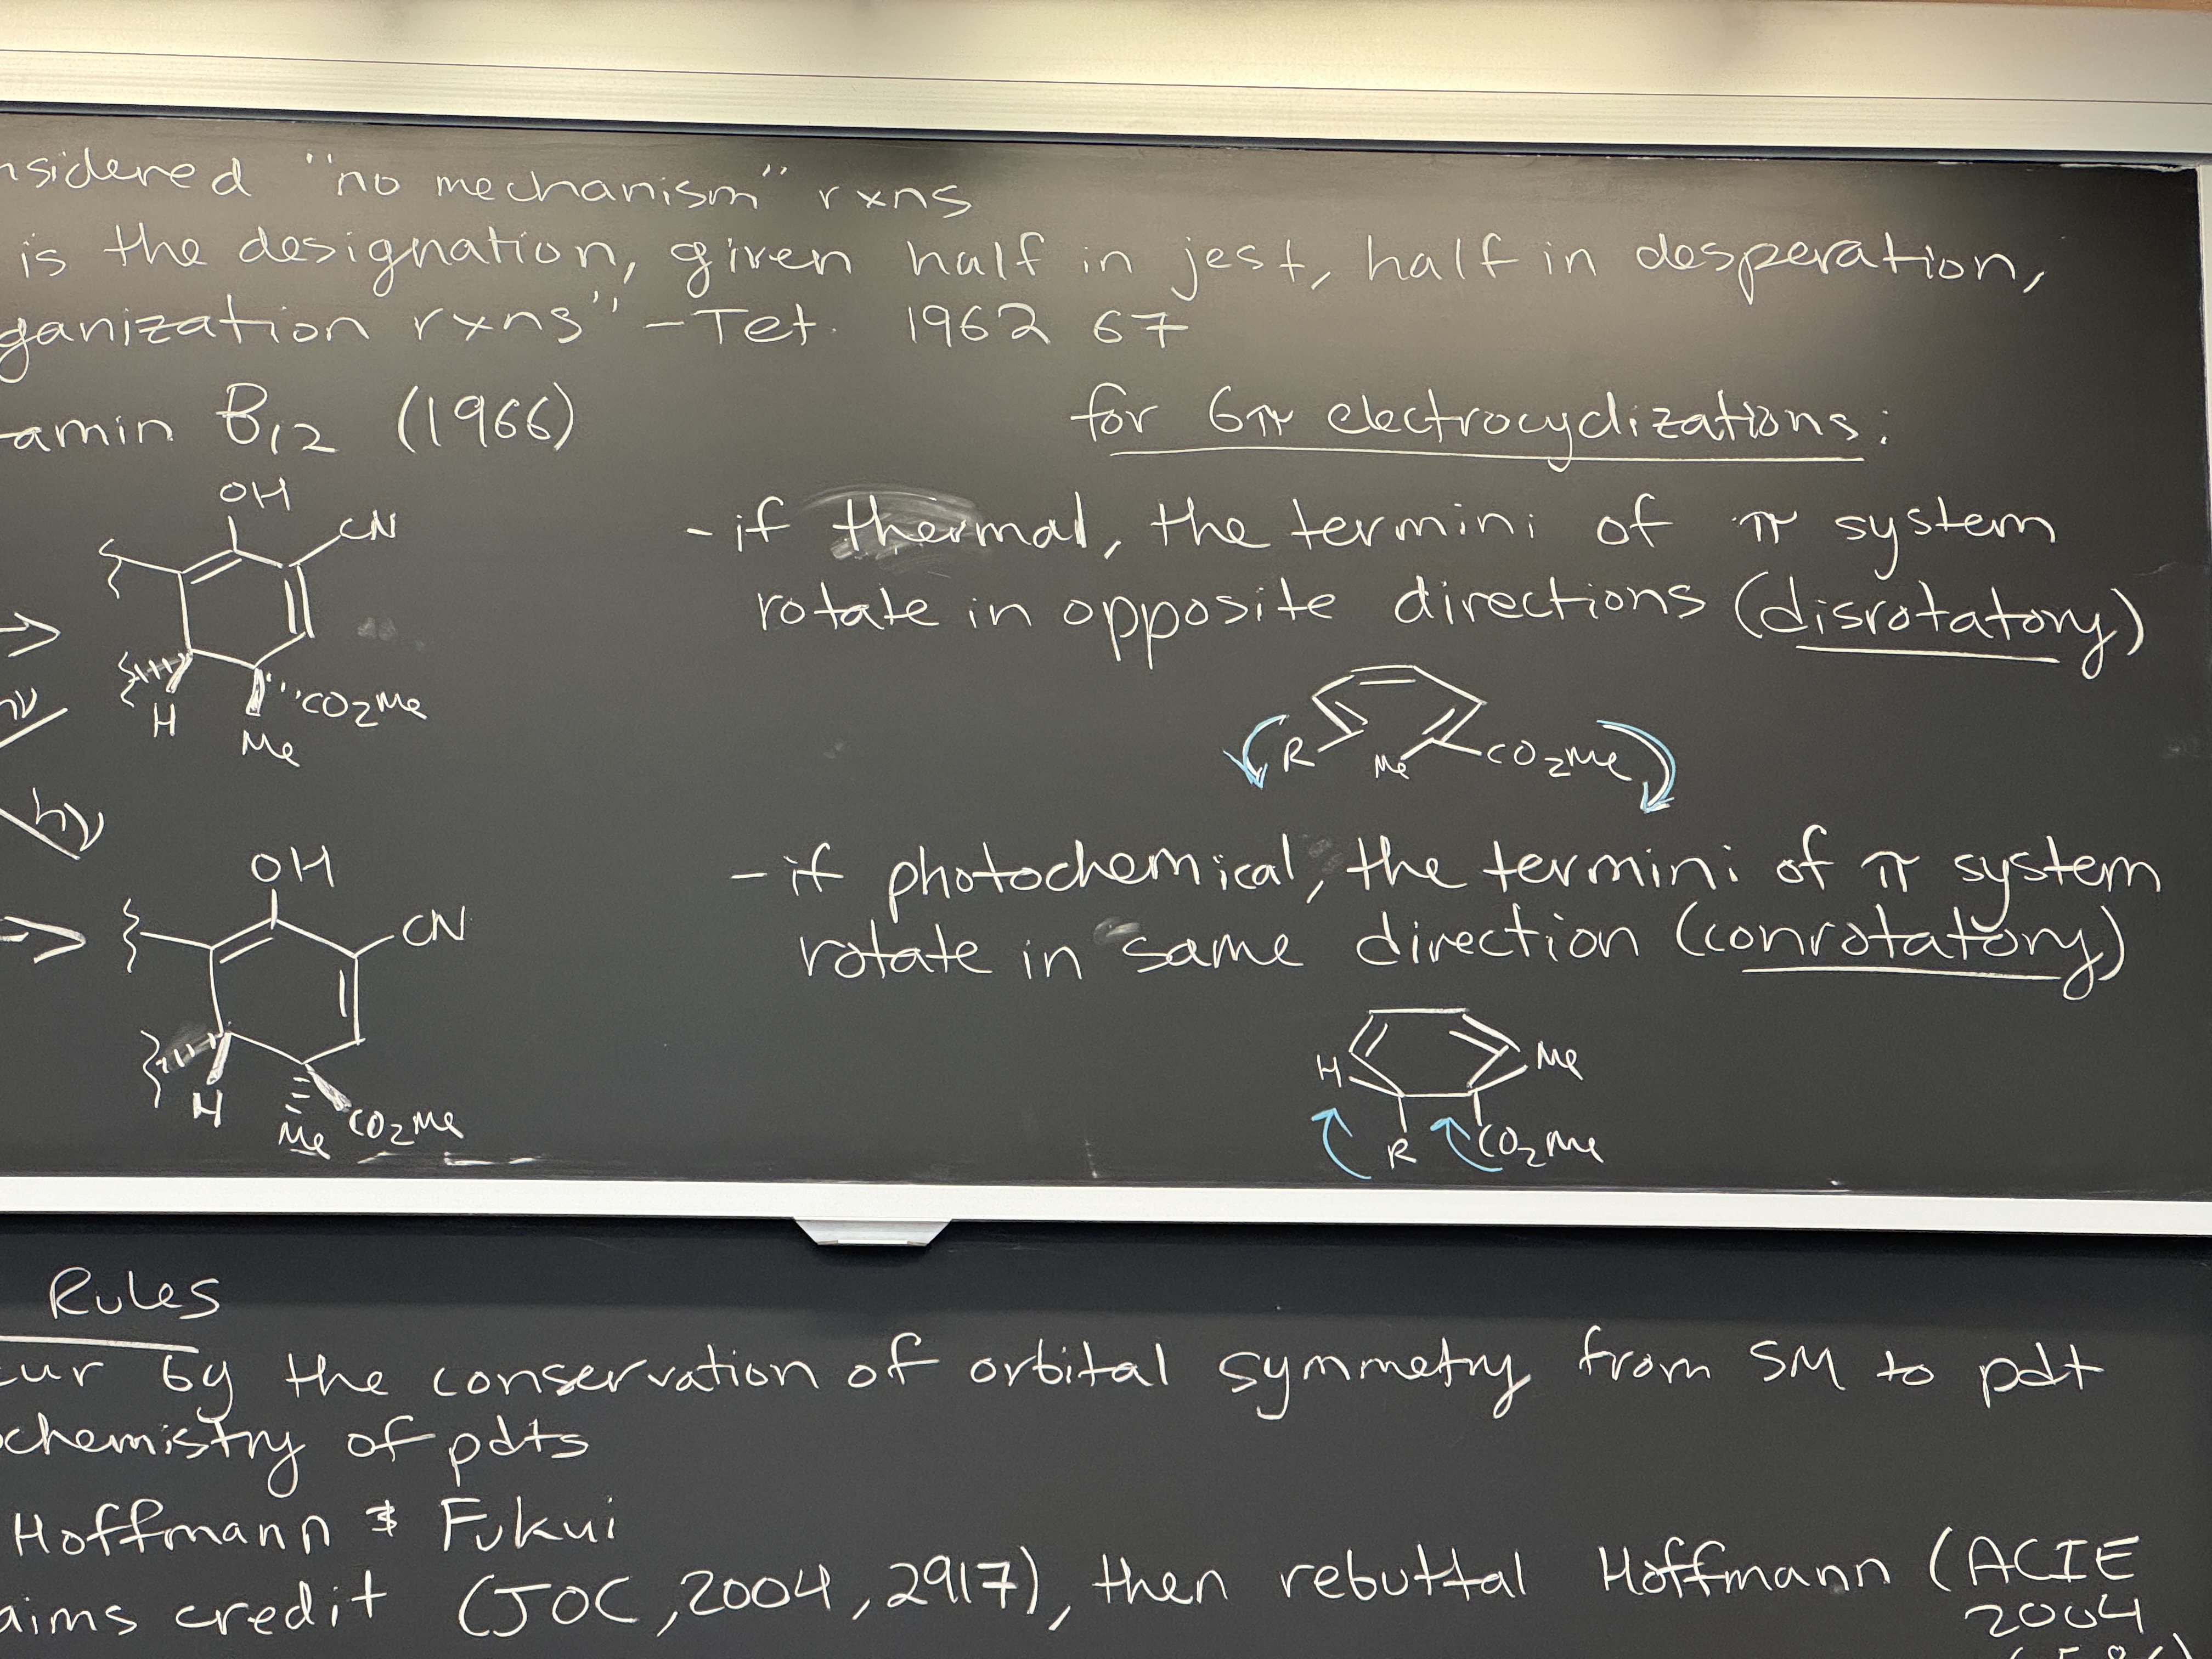 nsidered "no mechanism" rxns
is the designation, given half in jest, half in desperation,
ganization rxns" - Tet. 1962 67
amin B12 (1966)
OH
CN
H
Me
CO2Me
hν
OH
CN
H
Me
CO2Me
for 6π electrocyclizations:
- if thermal, the termini of π system
rotate in opposite directions (disrotatory)
R
Me
CO2Me
- if photochemical, the termini of π system
rotate in same direction (conrotatory)
H
Me
R
CO2Me
Rules
cur by the conservation of orbital symmetry from SM to pdt
ochemistry of pdts
Hoffmann & Fukui
aims credit (JOC, 2004, 2917), then rebuttal Hoffmann (ACIE
2004